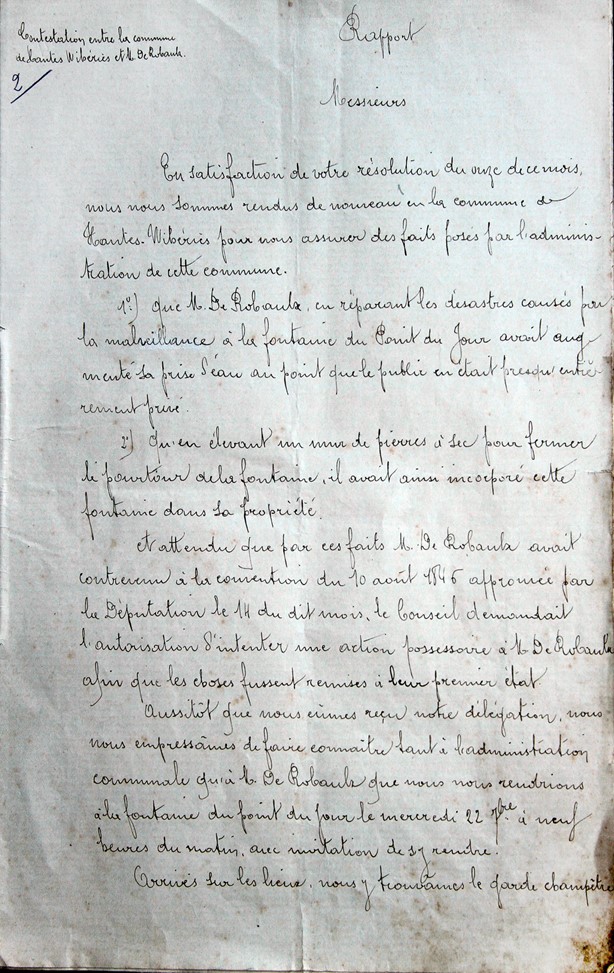 Contestation entre la commune
de Hantes Wibéries et M. De Robaulx.
2
Rapport
Messieurs
En satisfaction de votre résolution du onze de ce mois,
nous nous sommes rendus de nouveau en la commune de
Hantes-Wibéries pour nous assurer des faits posés par l'adminis-
tration de cette commune.
1°) que M. De Robaulx, en réparant les désastres causés par
la malveillance à la fontaine du Point du Jour avait aug-
menté sa prise d'eau au point que le public en était presqu'entiè-
rement privé.
2°) Qu'en élevant un mur de pierres à sec pour fermer
le pourtour de la fontaine, il avait ainsi incorporé cette
fontaine dans sa propriété.
et attendu que par ces faits M. De Robaulx avait
contrevenu à la convention du 10 août 1846 approuvée par
la Députation le 14 du dit mois, le Conseil demandait
l'autorisation d'intenter une action possessoire à M. De Robaulx
afin que les choses fussent remises à leur premier état.
Aussitôt que nous eûmes reçu notre délégation, nous
nous empressâmes de faire connaître tant à l'administration
communale qu'à M. De Robaulx que nous nous rendrions
à la fontaine du point du Jour le mercredi 22 7bre à neuf
heures du matin, avec invitation de s'y rendre.
Arrivés sur les lieux, nous y trouvâmes le garde champêtre